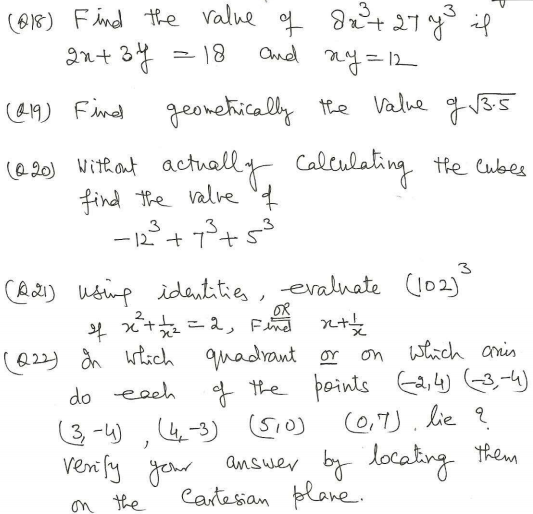 (Q18) Find the value of 8x³ + 27y³ if
2x + 3y = 18 and xy = 12
(Q19) Find geometrically the value of √3.5
(Q20) Without actually calculating the cubes
find the value of
-12³ + 7³ + 5³
(Q21) using identities, evaluate (102)³
OR
If x² + 1/x² = 2, Find x + 1/x
(Q22) In which quadrant or on which axis
do each of the points (-2,4) (-3,-4)
(3,-4), (4,-3) (5,0) (0,7). lie ?
Verify your answer by locating them
on the Cartesian plane.